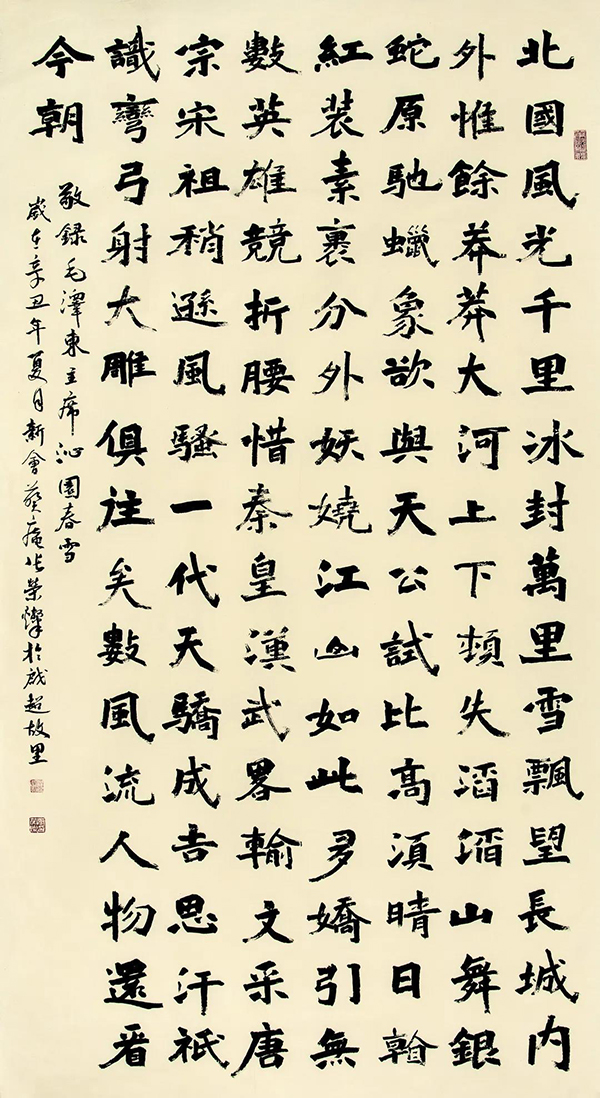 北國風光千里冰封萬里雪飄望長城内
外惟餘莽莽大河上下頓失滔滔山舞銀
蛇原馳蠟象欲與天公試比高須晴日看
紅裝素裹分外妖嬈江山如此多嬌引無
數英雄競折腰惜秦皇漢武畧輸文采唐
宗宋祖稍遜風騷一代天驕成吉思汗祗
識彎弓射大雕俱往矣數風流人物還看
今朝
敬録毛澤東主席沁園春雪
歲在辛丑年夏月新會葵庵張榮燦於啟超故里